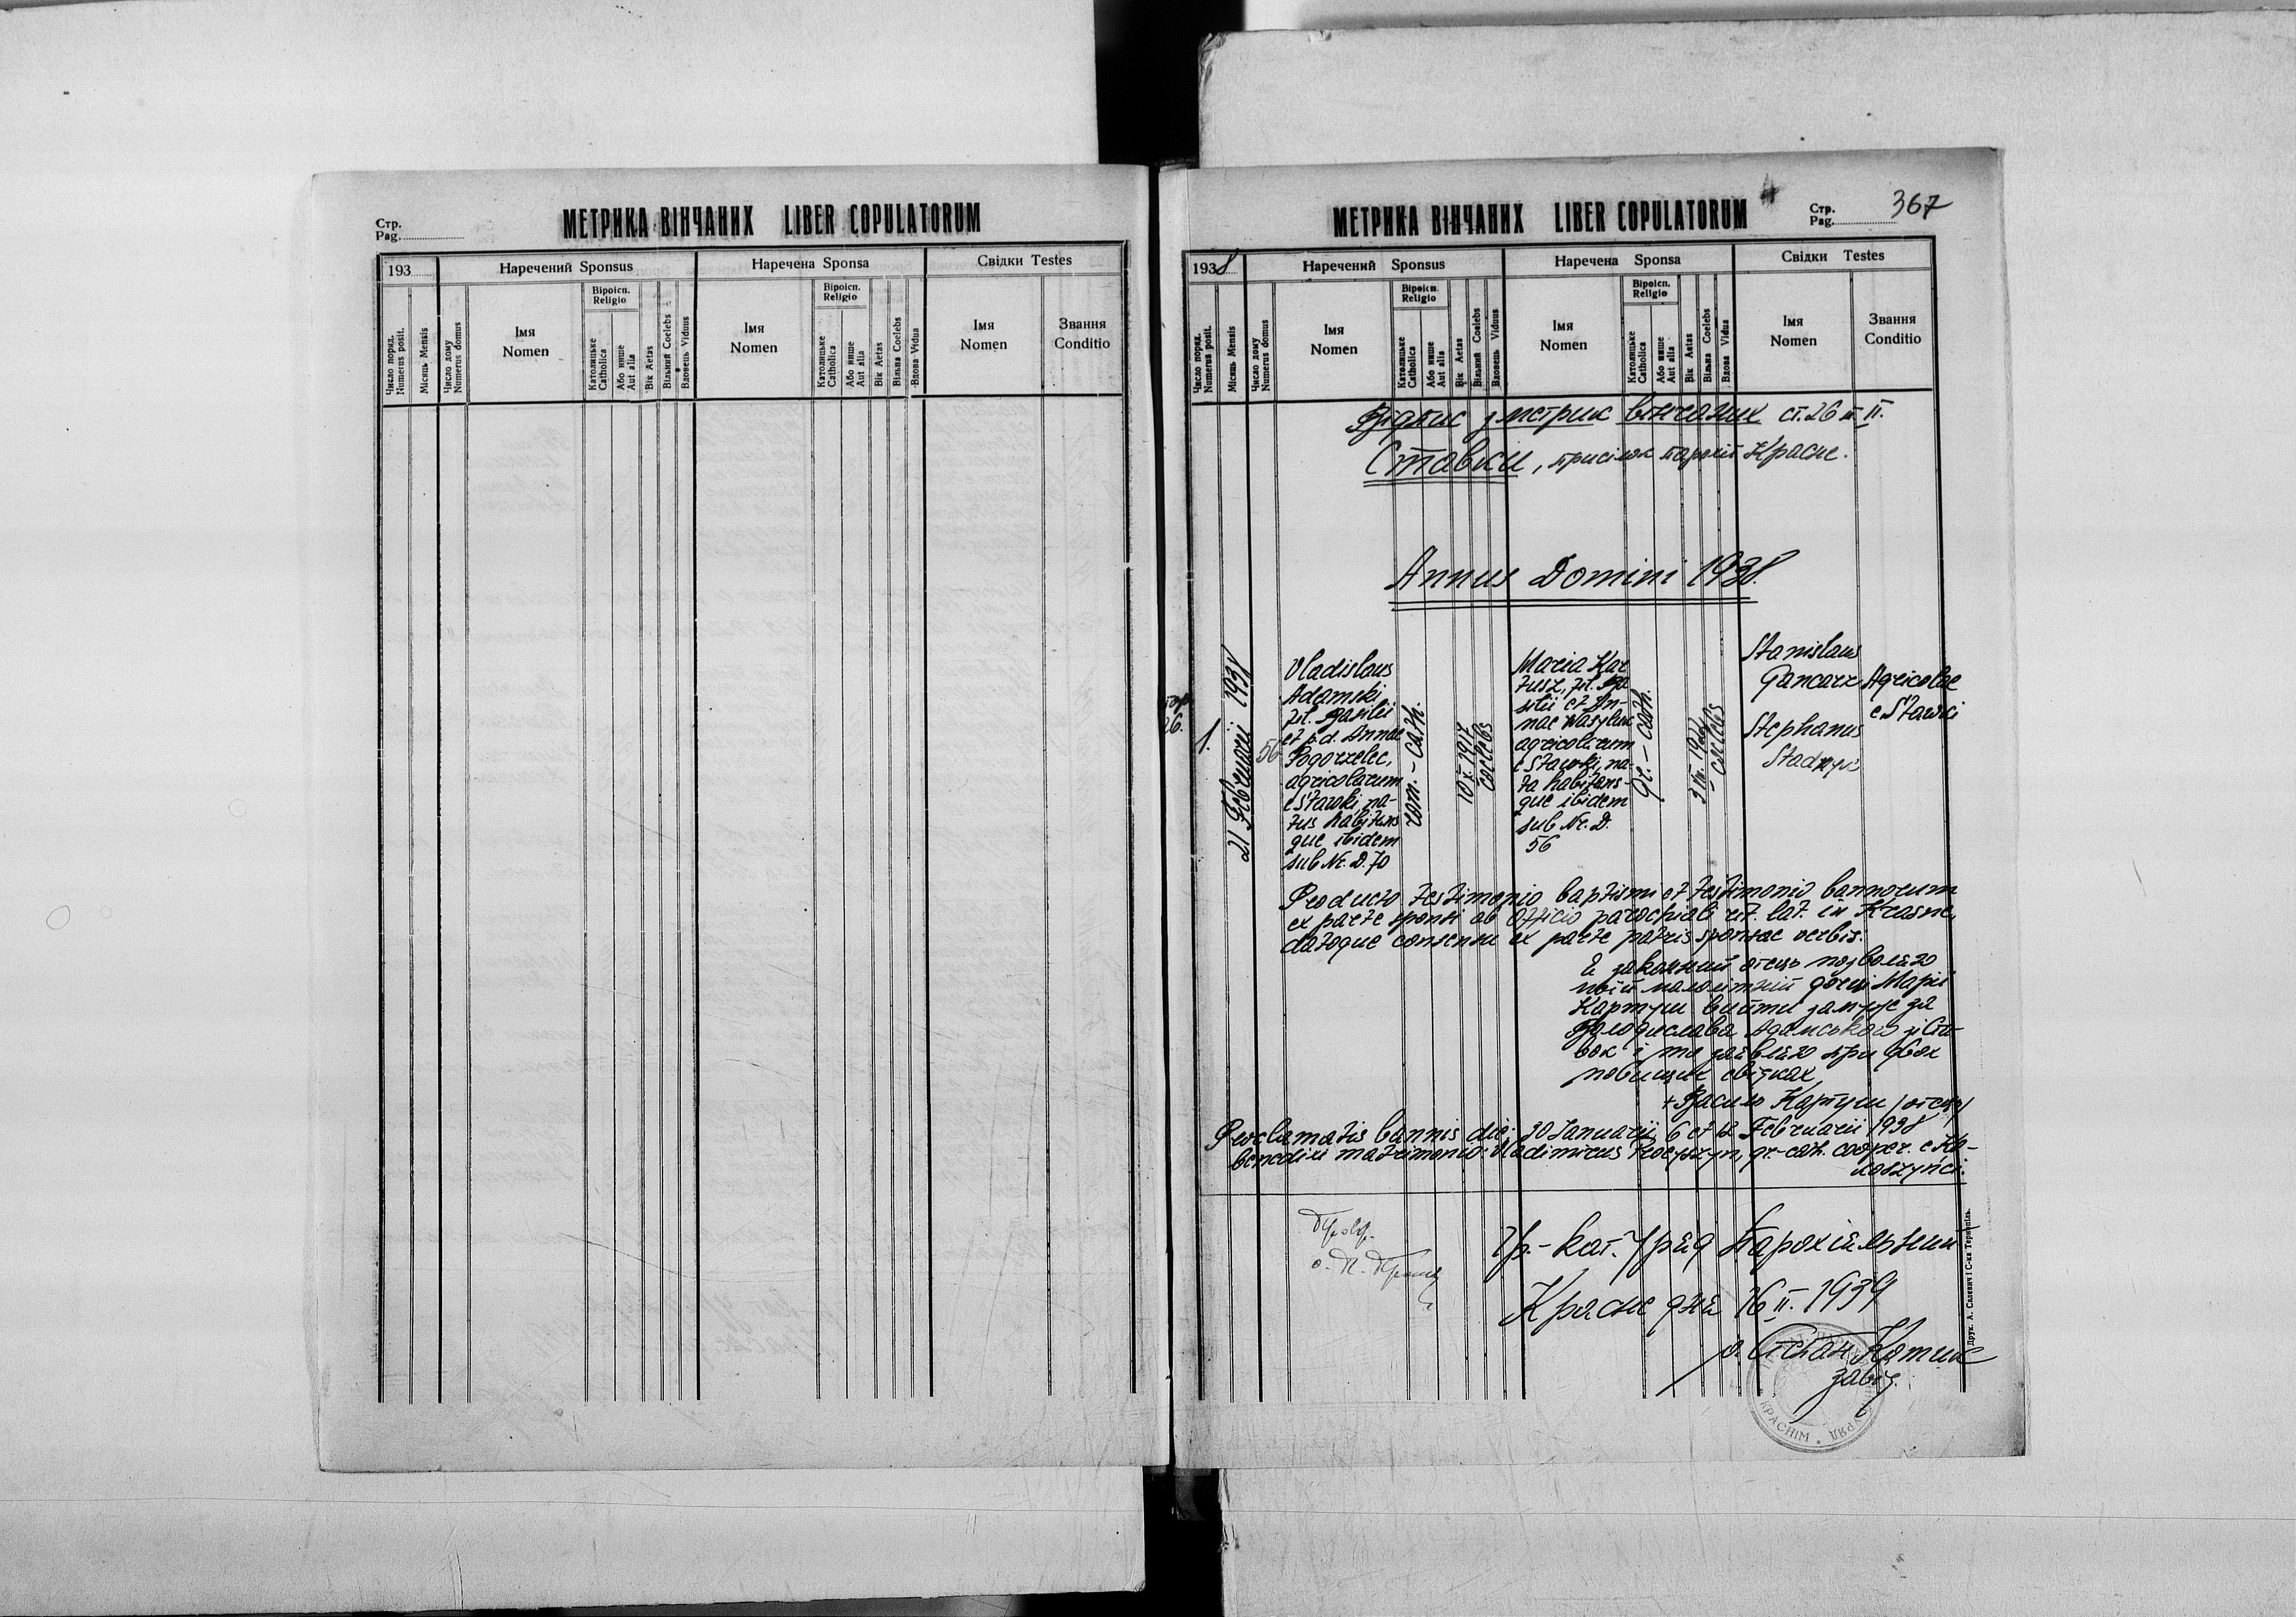 Стр.
Pag.
МЕТРИКА ВІНЧАНИХ LIBER COPULATORUM
193
Наречений Sponsus
Наречена Sponsa
Свідки Testes
Число поряд.
Numerus posit.
Місяць Mensis
Число дому
Numerus domus
Імя
Nomen
Віроісп.
Religio
Католицьке
Catholica
Або инше
Aut alia
Вік Aetas
Вільний Coelebs
Вдовець Viduus
Імя
Nomen
Віроісп.
Religio
Католицьке
Catholica
Або инше
Aut alia
Вік Aetas
Вільна Coelebs
Вдова Vidua
Імя
Nomen
Звання
Conditio
МЕТРИКА ВІНЧАНИХ LIBER COPULATORUM
Стр.
Pag.
367
1938
Наречений Sponsus
Наречена Sponsa
Свідки Testes
Число поряд.
Numerus posit.
Місяць Mensis
Число дому
Numerus domus
Імя
Nomen
Віроісп.
Religio
Католицьке
Catholica
Або инше
Aut alia
Вік Aetas
Вільний Coelebs
Вдовець Viduus
Імя
Nomen
Віроісп.
Religio
Католицьке
Catholica
Або инше
Aut alia
Вік Aetas
Вільна Coelebs
Вдова Vidua
Імя
Nomen
Звання
Conditio
Відпис з метрик вінчаних ст. 26 т. II.
Ставки, присілок парохії Красне.
Annus Domini 1938.
26.
1.
21 Februarii 1938
56
Vladislaus
Adamski
fil. Basilii
et p.d. Annae
Pogorzelec,
agricolarum
e Stawki, na-
tus habitans
que ibidem
sub Nr. D. 70
rom.-cath.
10 X 1917
coelebs
Maria Kar
tusz, fil. Ba
silii et An-
nae Wasyluk
agricolarum
e Stawki, na-
ta habitans-
que ibidem
sub Nr. D.
56
gr.-cath.
coelebs
Stanislaus
Gancarz
Stephanus
Agricolae
e Stawki
Producto testimonio baptismi et testimonio bannorum
ex parte sponsi ab Officio parochiali rit. lat. in Krasne,
datoque consensu ex parte patris sponsae verbis:
Я законний отець позволяю
моїй малолітній дочці Марії
Картуш вийти замуж за
Володислава Адамського зі Ста-
вок і то заявляю при двох
повищих свідках,
+ Василь Картуш /отець/
Proclamatis bannis die: 30 Januarii, 6 et 12 Februarii 1938
benedixi matrimonio: Vladimirus gr.-cath. cooper. e Ka-
Гр.-кат. Уряд Парохіяльний
Красне дня 16 II. 1939
о. Степан
завід.
Друк. А. Салевич і С-ка Тернопіль.